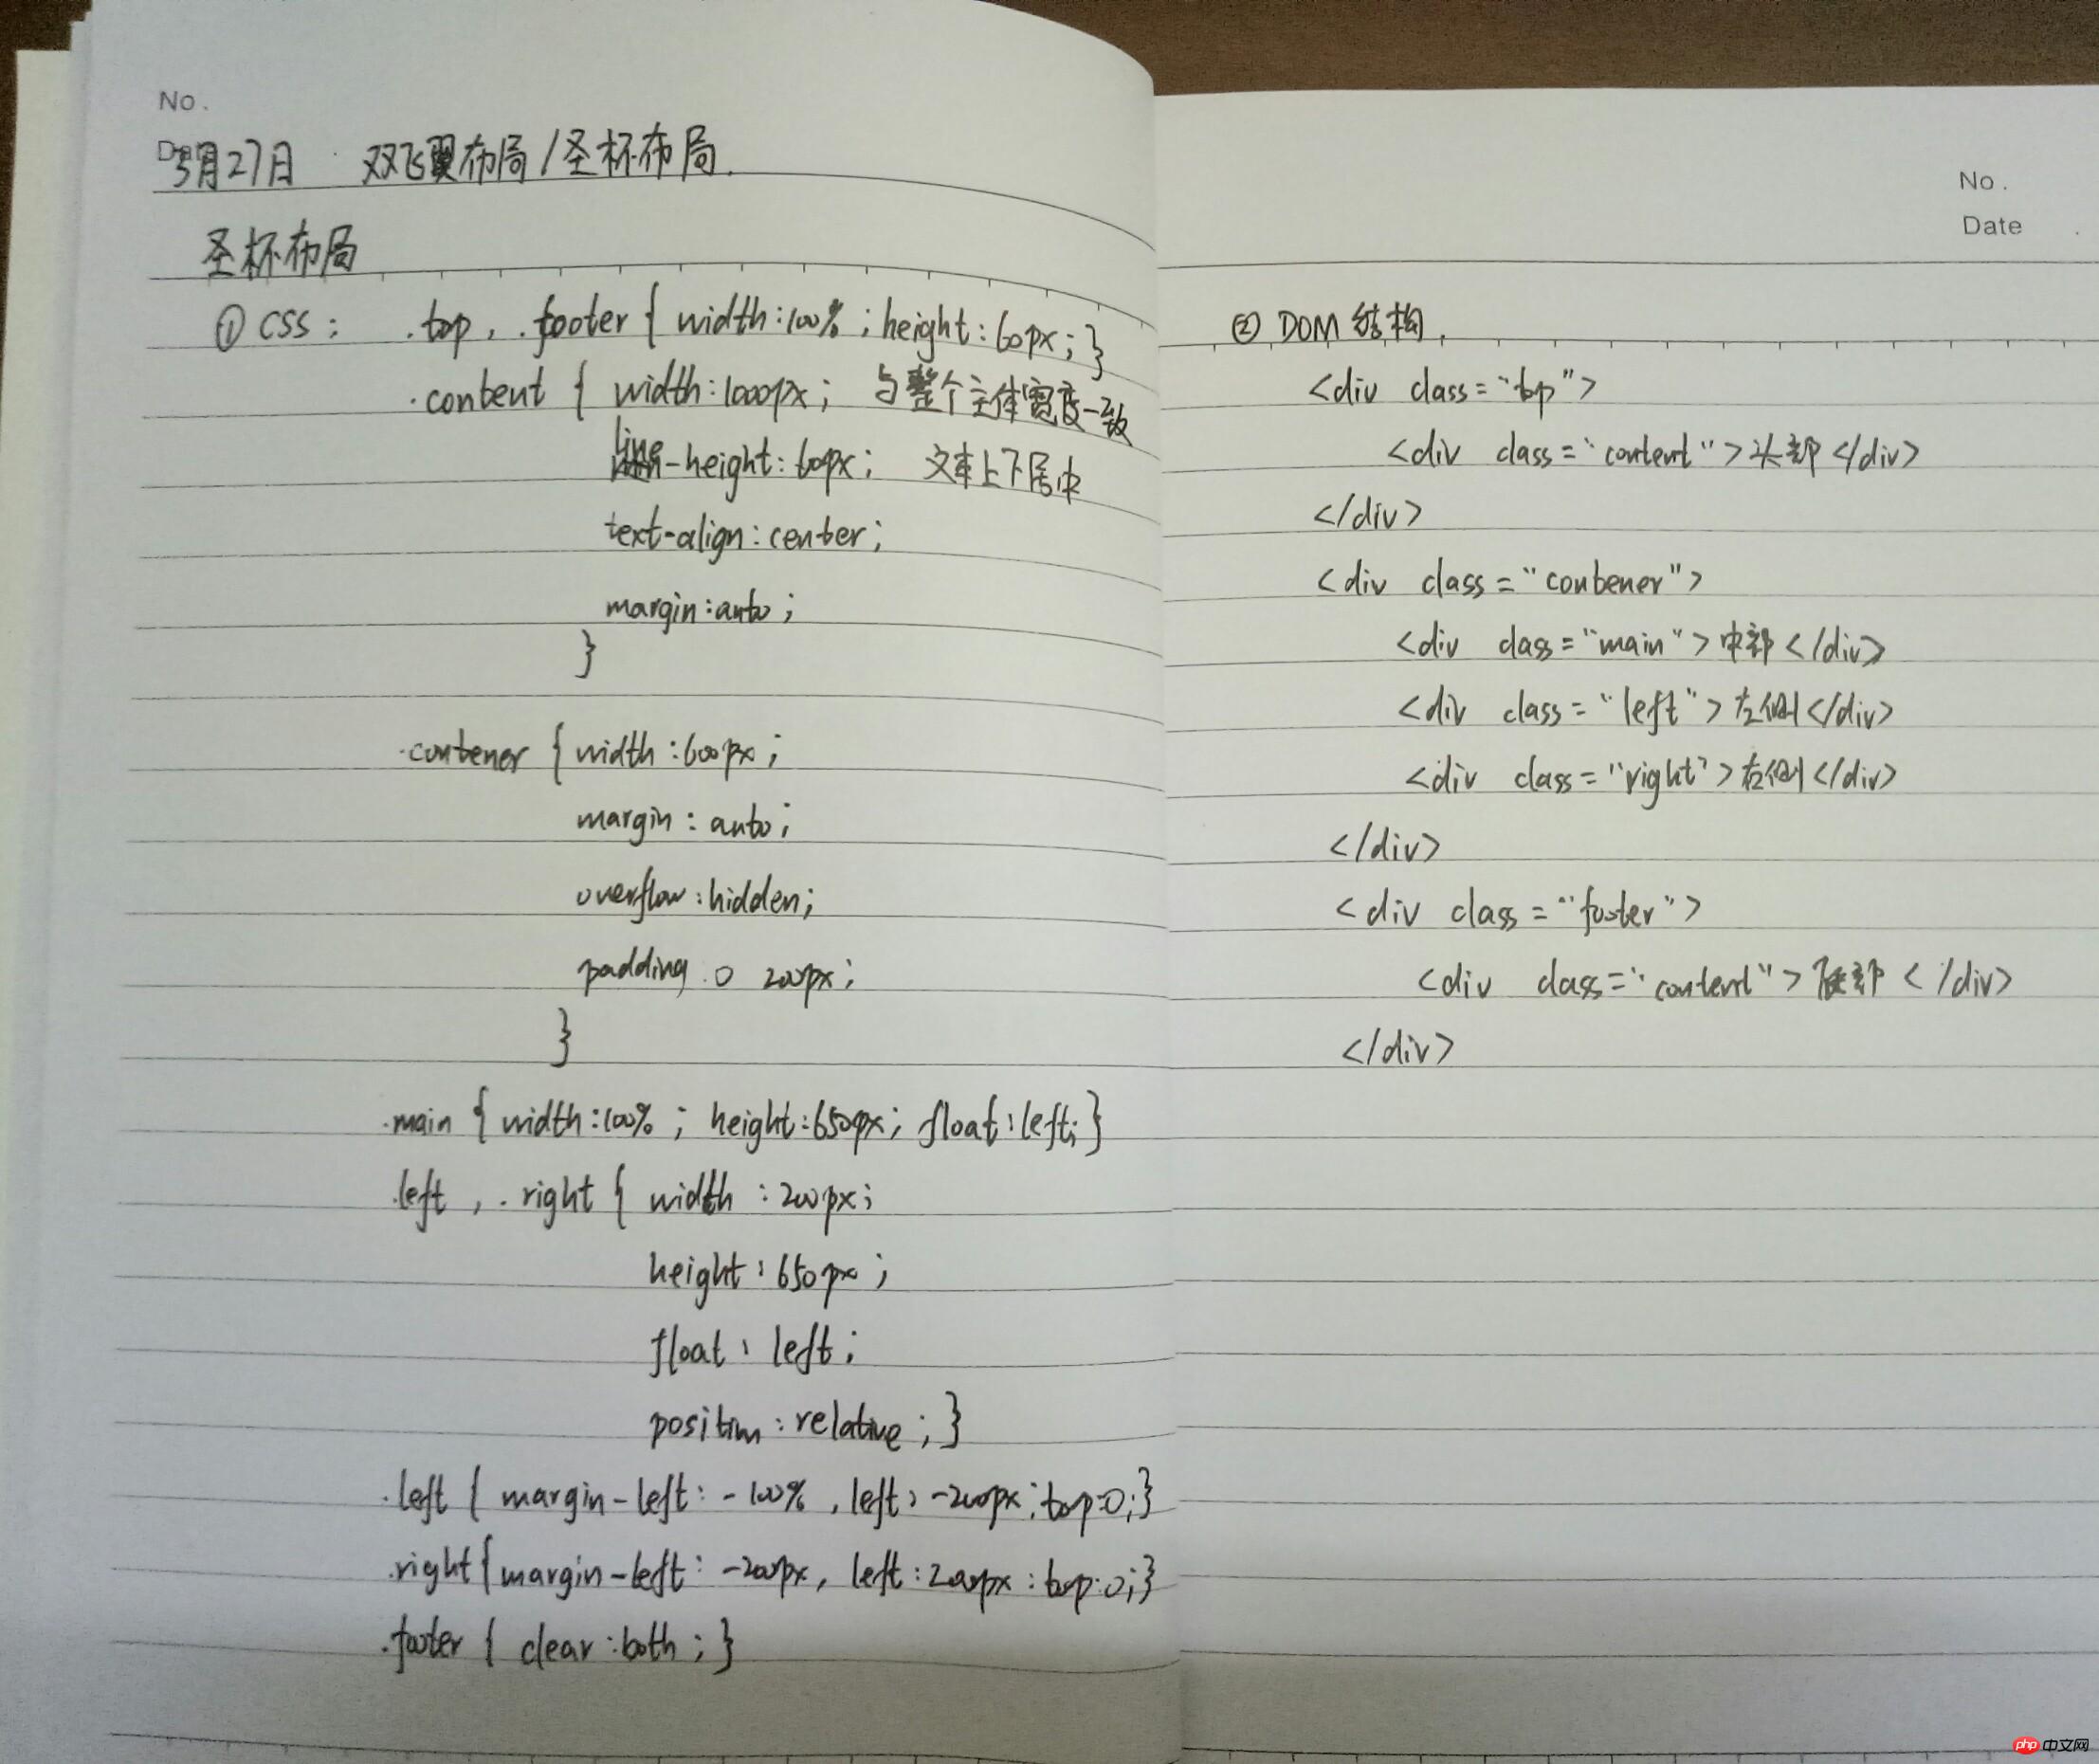 No.
Date
3月27日 双飞翼布局/圣杯布局.
圣杯布局
① CSS: .top, .footer { width:100%; height:60px; }
.content { width:1000px; 与整个主体宽度一致
line-height:60px; 文本上下居中
text-align:center;
margin:auto;
}
.contener { width:600px;
margin:auto;
overflow:hidden;
padding.0 200px;
}
.main { width:100%; height:650px; float:left; }
.left, .right { width:200px;
height:650px;
float:left;
position:relative; }
.left { margin-left:-100%, left:-200px; top:0; }
.right { margin-left:-200px, left:200px: top:0; }
.footer { clear:both; }
No.
Date
② DOM结构.
<div class="top">
<div class="content">头部</div>
</div>
<div class="contener">
<div class="main">中部</div>
<div class="left">左侧</div>
<div class="right">右侧</div>
</div>
<div class="footer">
<div class="content">底部</div>
</div>
php中文网